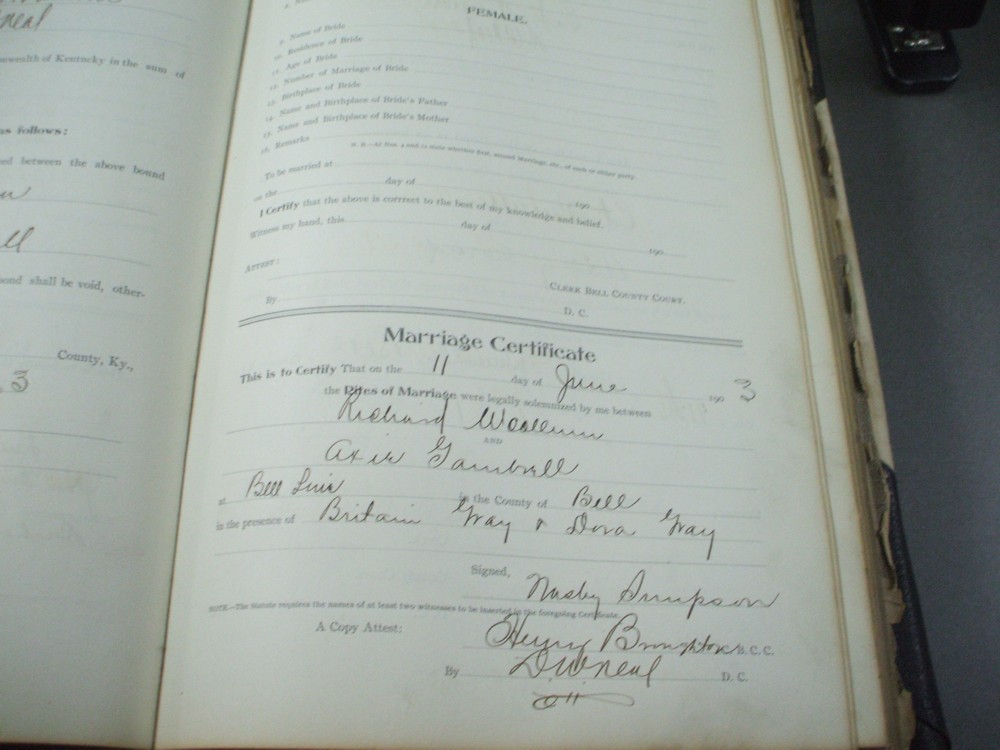 neal
wealth of Kentucky in the sum of
as follows:
ed between the above bound
ll
bond shall be void, other-
County, Ky.,
3
FEMALE.
9. Name of Bride
10. Residence of Bride
11. Age of Bride
12. Number of Marriage of Bride
13. Birthplace of Bride
14. Name and Birthplace of Bride's Father
15. Name and Birthplace of Bride's Mother
16. Remarks
N. B.—At Nos. 4 and 12 state whether first, second Marriage, etc., of each or either party.
To be married at
on the day of 190
I Certify that the above is corrrect to the best of my knowledge and belief.
Witness my hand, this day of 190
ATTEST:
CLERK BELL COUNTY COURT.
By D. C.
Marriage Certificate
This is to Certify That on the 11 day of June 190 3
the Rites of Marriage were legally solemnized by me between
Richard Woollum
AND
Axie Gambrell
at Bell in the County of Bell
in the presence of Britain Gray & Dora Gray
Signed, Nasby Simpson
NOTE.—The Statute requires the names of at least two witnesses to be inserted in the foregoing Certificate.
A Copy Attest: Henry Broughton B. C. C.
By D. W. Neal D. C.